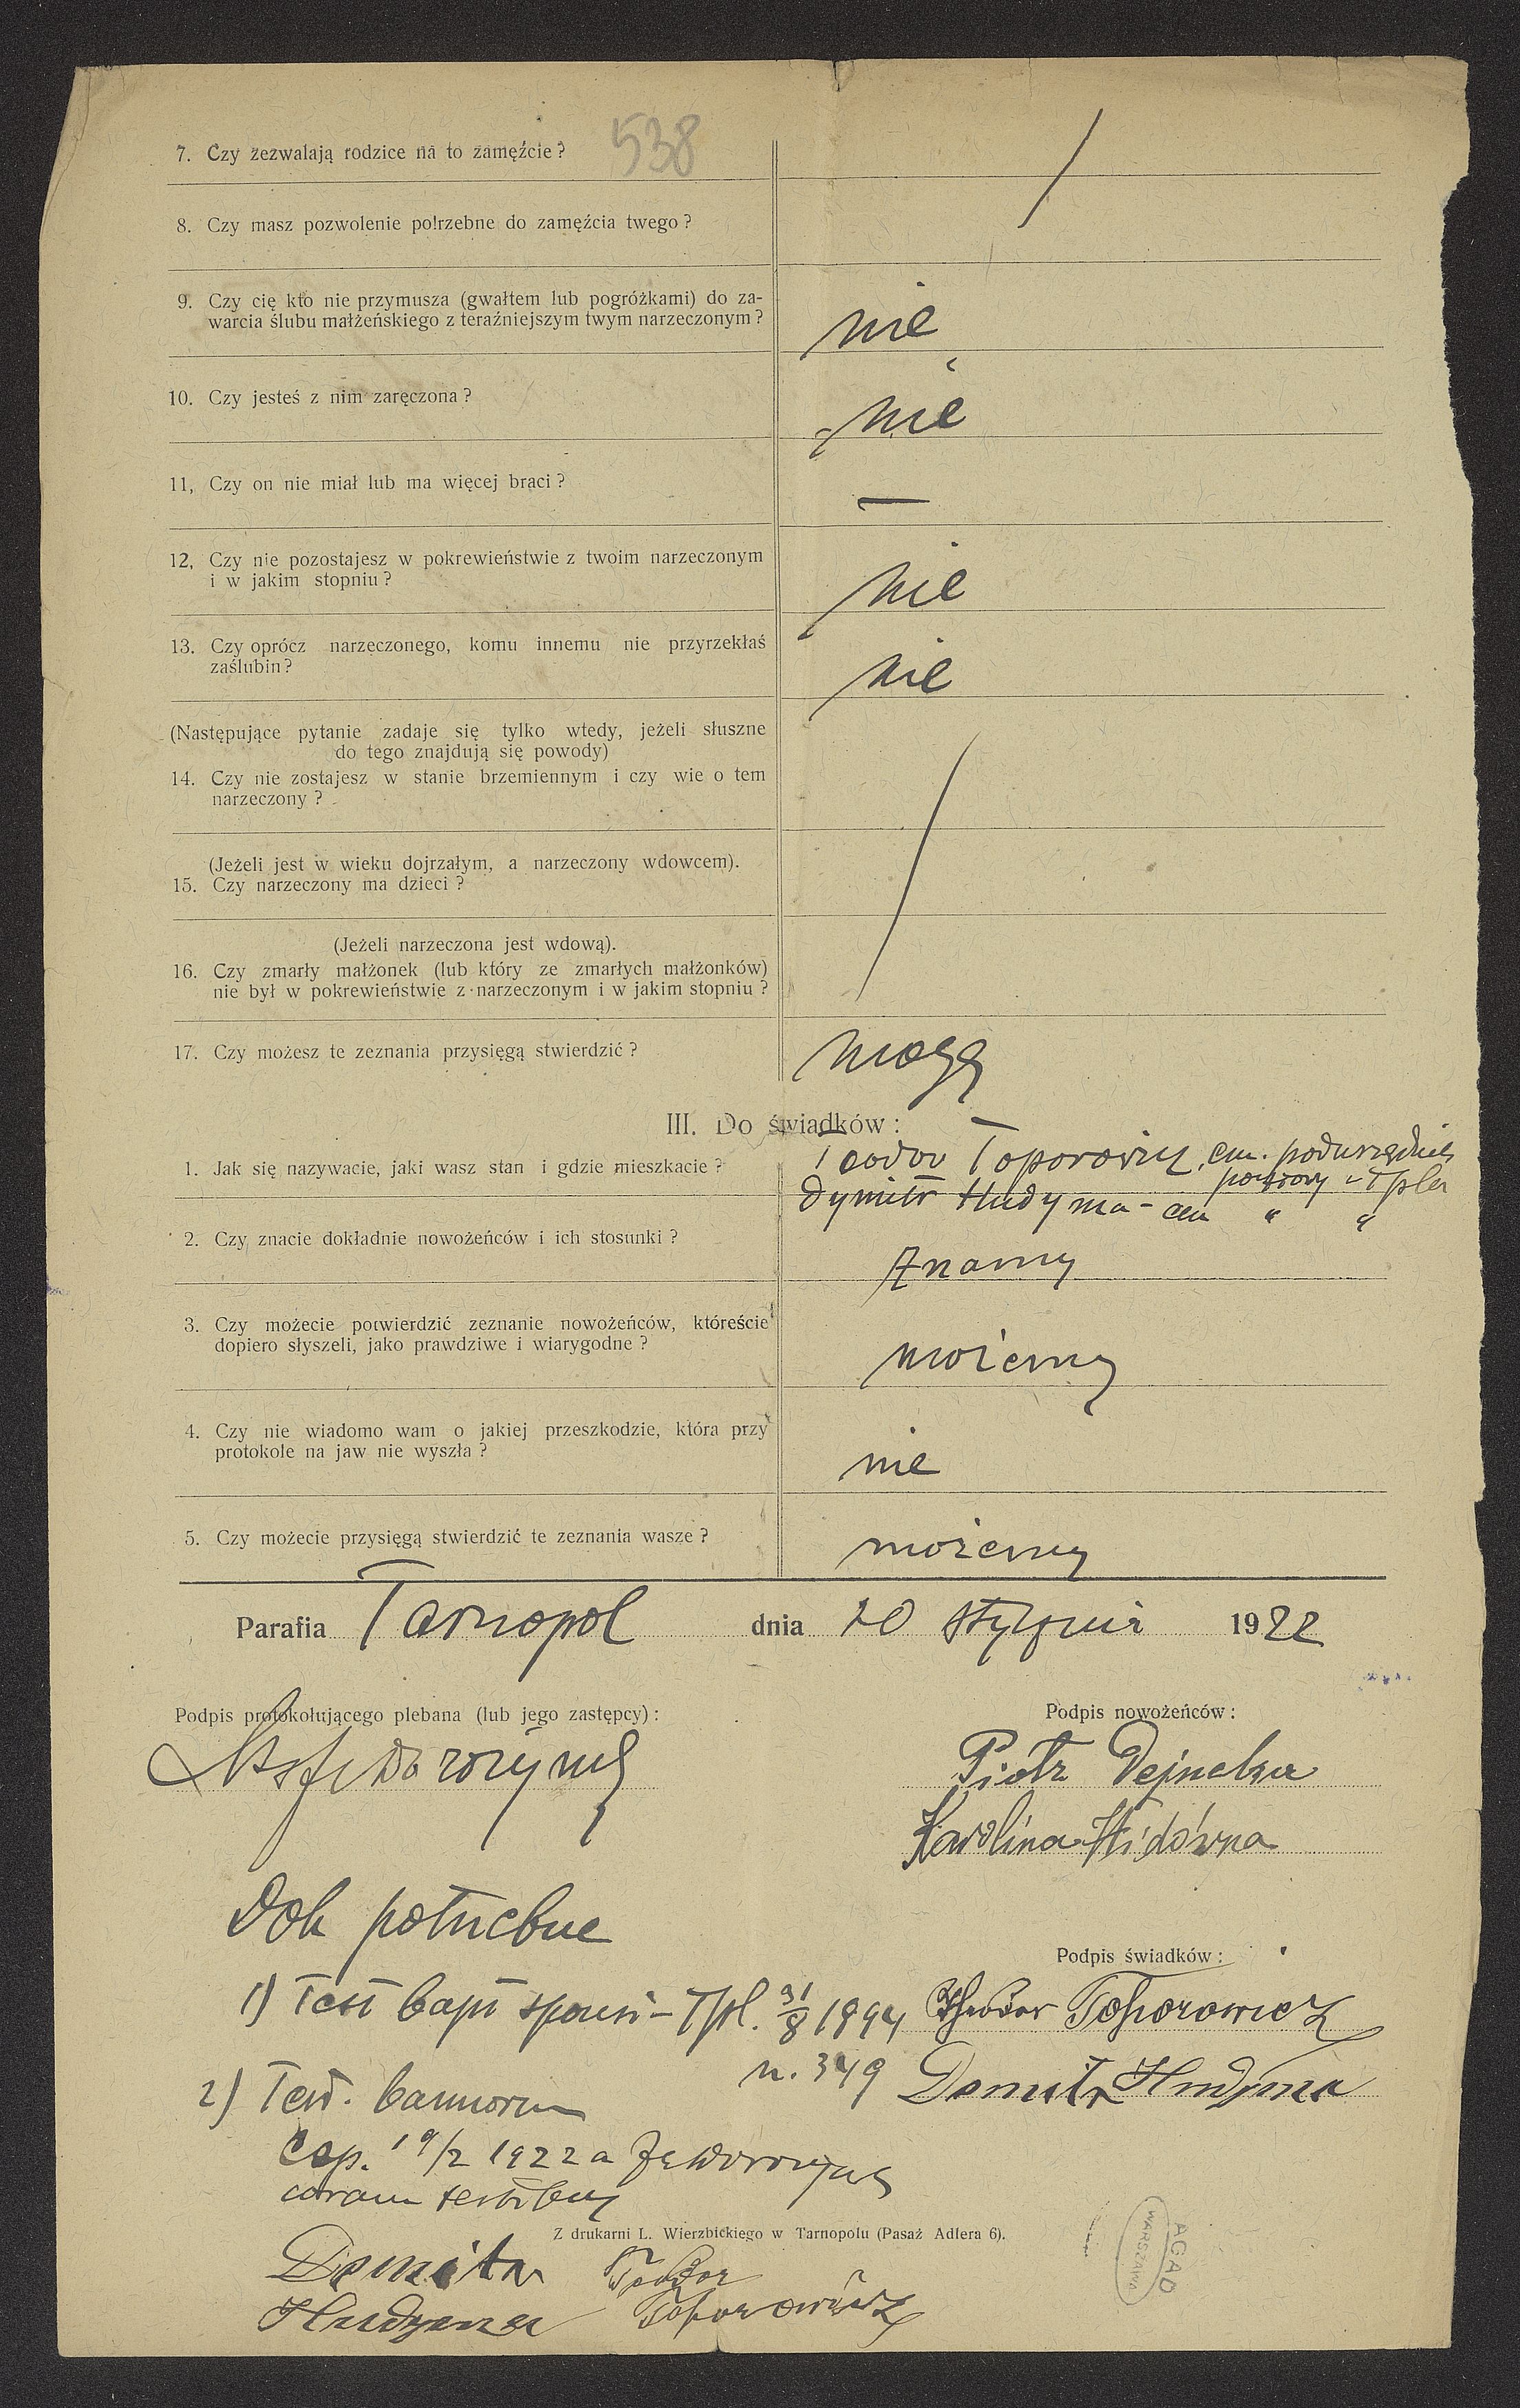 538
7. Czy zezwalają rodzice na to zamęźcie?
8. Czy masz pozwolenie potrzebne do zamęźcia twego?
9. Czy cię kto nie przymusza (gwałtem lub pogróżkami) do za-
warcia ślubu małżeńskiego z teraźniejszym twym narzeczonym?
nie
10. Czy jesteś z nim zaręczona?
nie
11, Czy on nie miał lub ma więcej braci?
—
12, Czy nie pozostajesz w pokrewieństwie z twoim narzeczonym
i w jakim stopniu?
nie
13. Czy oprócz narzeczonego, komu innemu nie przyrzekłaś
zaślubin?
nie
(Następujące pytanie zadaje się tylko wtedy, jeżeli słuszne
do tego znajdują się powody)
14. Czy nie zostajesz w stanie brzemiennym i czy wie o tem
narzeczony?
(Jeżeli jest w wieku dojrzałym, a narzeczony wdowcem).
15. Czy narzeczony ma dzieci?
(Jeżeli narzeczona jest wdową).
16. Czy zmarły małżonek (lub który ze zmarłych małżonków)
nie był w pokrewieństwie z narzeczonym i w jakim stopniu?
17. Czy możesz te zeznania przysięgą stwierdzić?
mogę
III. Do świadków:
1. Jak się nazywacie, jaki wasz stan i gdzie mieszkacie?
Teodor Toporowicz, em. podurzędnik
pocztowy - Tpla
Dymitr Hudyma - em " "
2. Czy znacie dokładnie nowożeńców i ich stosunki?
Znamy
3. Czy możecie potwierdzić zeznanie nowożeńców, któreście
dopiero słyszeli, jako prawdziwe i wiarygodne?
możemy
4. Czy nie wiadomo wam o jakiej przeszkodzie, która przy
protokole na jaw nie wyszła?
nie
5. Czy możecie przysięgą stwierdzić te zeznania wasze?
możemy
Parafia Tarnopol dnia 20 stycznia 1922
Podpis protokołującego plebana (lub jego zastępcy):
Podpis nowożeńców:
Piotr Dejneka
Karolina Hidówna
Dok potrzebne
Podpis świadków:
1) Test bapt sponsi - Tpl. 31/8 1894
Theodor Toporowicz
n. 349
Demitr Hudyma
2) Test. bannorum
Cop. 19/2 1922 a
coram testibus
Z drukarni L. Wierzbickiego w Tarnopolu (Pasaż Adlera 6).
Demitr Teodor
Hudyma Toporowicz
AGAD
WARSZAWA